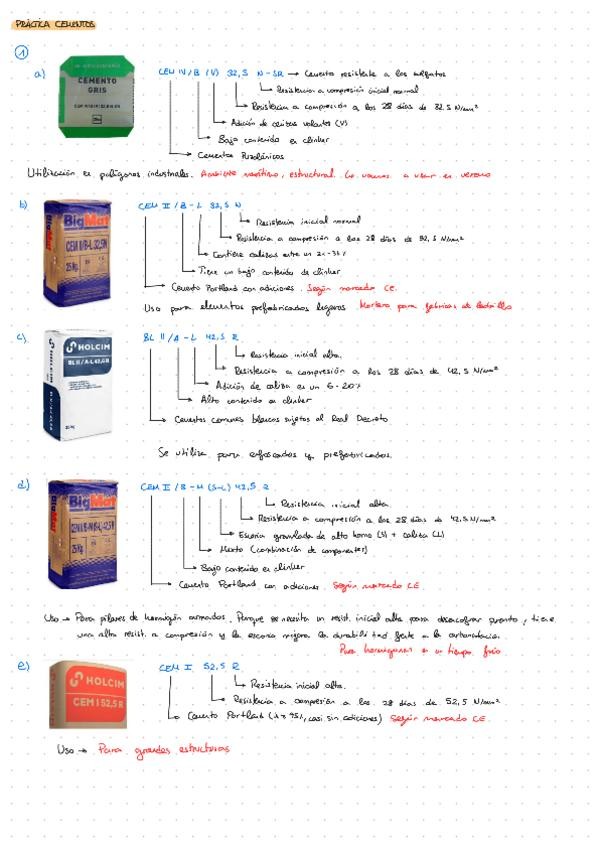 PRÁCTICA CEMENTOS
1
a)
CEMENTO
GRIS
CEM IV/B (V) 32,5 N-SR → Cemento resistente a los sulfatos
Resistencia a compresión inicial normal
Resistencia a compresión a los 28 días de 32.5 N/mm²
Adición de cenizas volantes (V)
Bajo contenido en clinker
Cementos Puzolánicos
Utilización en polígonos industriales. Ambiente marítimo, estructural. Lo vamos a usar en verano
b)
BigMat
CEM II/B-L 32,5N
25Kg
CEM II/B-L 32,5 N
Resistencia inicial normal
Resistencia a compresión a los 28 días de 32,5 N/mm²
Contiene calizas entre un
Tiene un bajo contenido de clinker
Cemento Portland con adiciones. Según marcado CE.
Uso para elementos prefabricados ligeros Mortero para fábricas de ladrillo
c)
HOLCIM
BL II/A-L 42,5 R
BL II/A-L 42,5 R
Resistencia inicial alta.
Resistencia a compresión a los 28 días de 42,5 N/mm²
Adición de caliza en un 6-20%
Alto contenido en clinker
Cementos comunes blancos sujetos al Real Decreto
Se utiliza para enfoscados y prefabricados.
d)
BigMat
25Kg
CEM II/B-M (S-L) 42,5 R
Resistencia inicial alta.
Resistencia a compresión a los 28 días de 42.5 N/mm²
Escoria granulada de alto horno (S) + caliza (L)
Mixto (combinación de componentes)
Bajo contenido en clinker
Cemento Portland con adiciones. Según marcado CE.
Uso → Para pilares de hormigón armados. Porque se necesita un resist. inicial alta para desencofrar pronto, tiene
una alta resist. a compresión y la escoria mejora la durabilidad frente a la carbonatación.
Para hormigonar en un tiempo frío
e)
HOLCIM
CEM I 52,5 R
CEM I 52,5 R
Resistencia inicial alta.
Resistencia a compresión a los 28 días de 52,5 N/mm²
Cemento Portland casi sin adiciones) Según marcado CE.
Uso → Para grandes estructuras